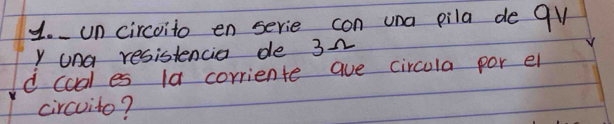 1._ un circuito en serie con una pila de 9V
y una resistencia de 3Ω
¿ cual es la corriente que circula por el
circuito?